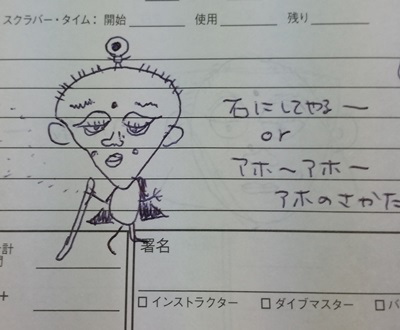 スクラバー・タイム： 開始 使用 残り
石にしてやるー
or
アホ〜アホー
アホのさかた
署名
計
間
+
□ インストラクター □ ダイブマスター □ バ